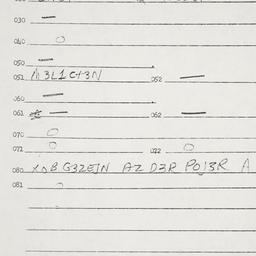 030 —
040 O
050 —
051 M3L1C+3N 052 —
060 —
061 — 062 —
070 O
071 O 072 O
080 XDB G3ZEJN AZ D3R PO13R A
081 O